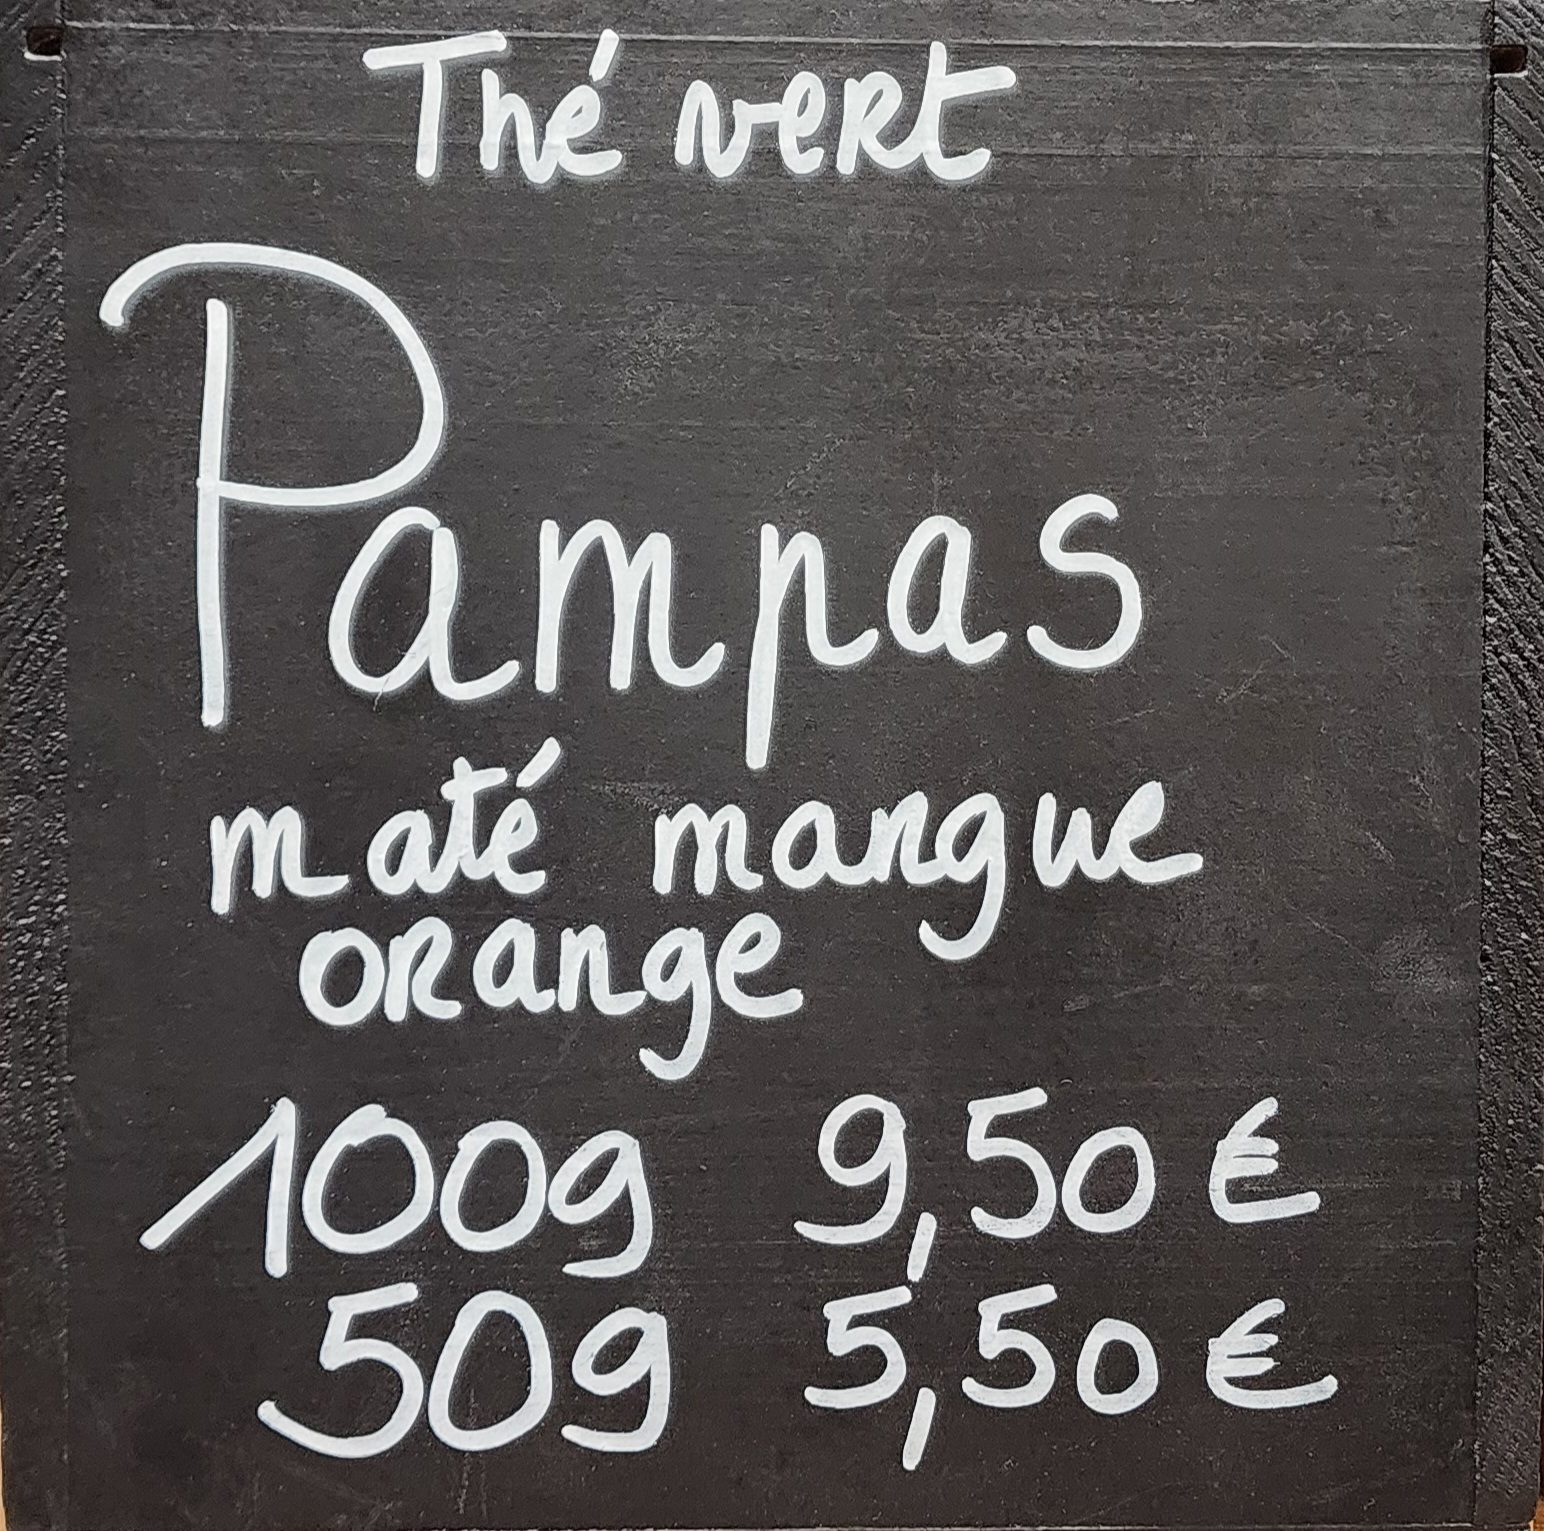 Thé vert
Pampas
maté mangue
orange
100g 9,50 €
50g 5,50 €